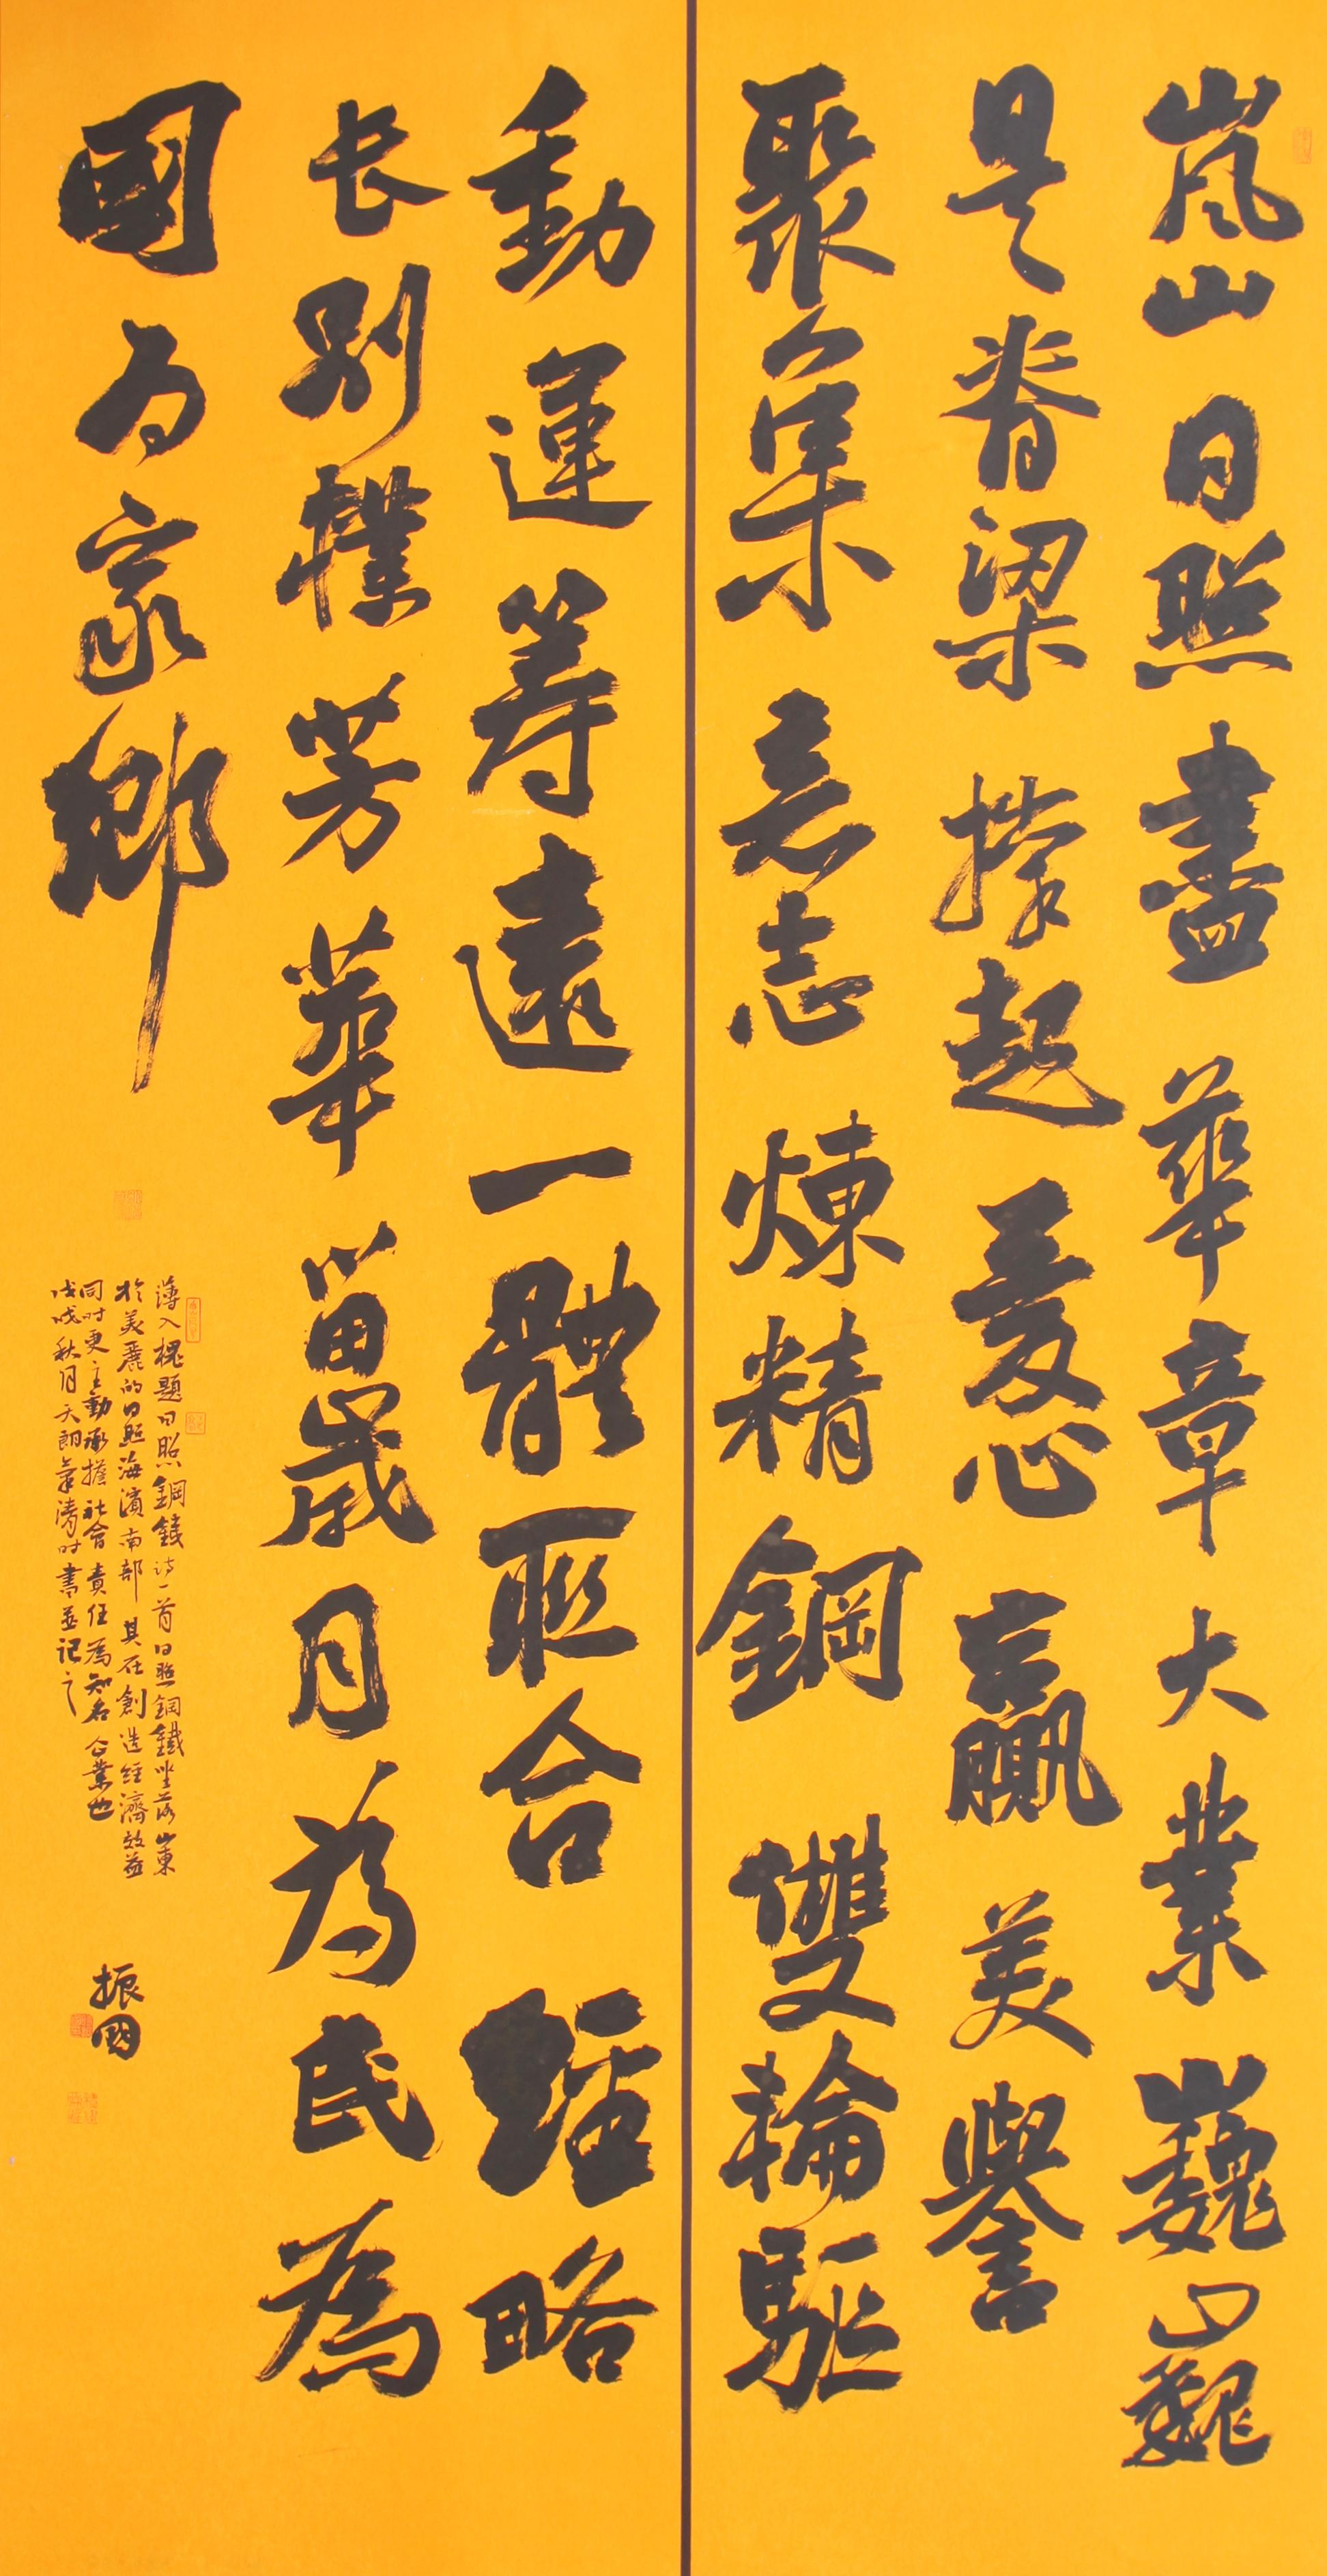 嵐山日照盡華章大業巍巍
是脊梁撐起愛心贏美譽
聚集意志煉精鋼雙輪驅
動運籌遠一體聯合經略
长別樣芳華當歲月為民為
國为家鄉
薄入槐題日照鋼鐵诗一首日照鋼鐵坐落山東
於美麗的日照海濱南部其在創造經濟效益
同时更主動承擔社會責任為知名企業也
戊戌秋月天朗氣清时書並記之
振國